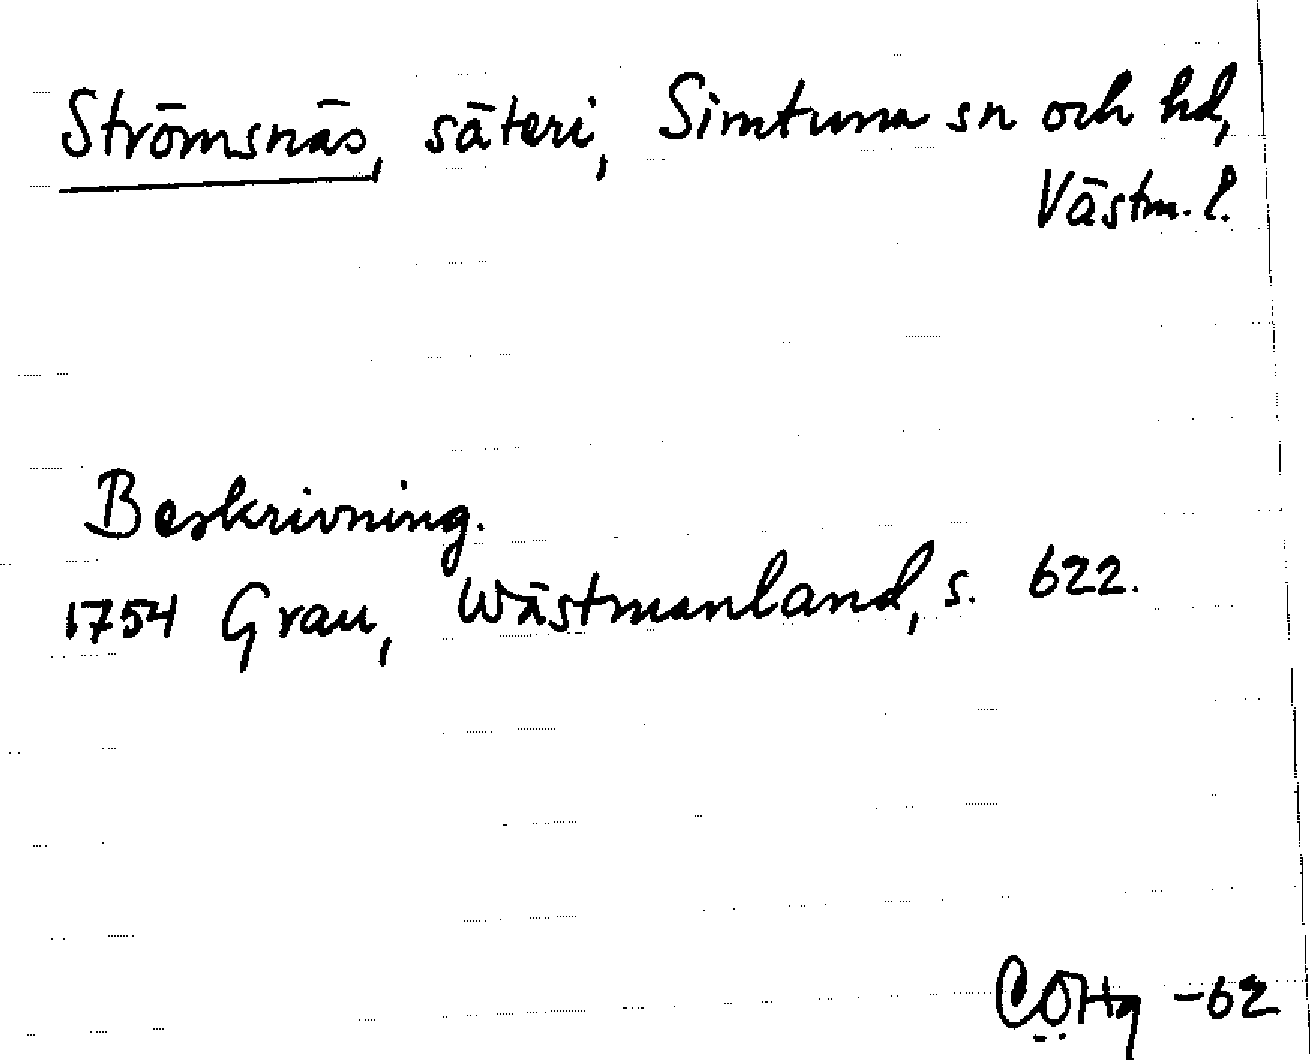 Strömsnäs, säteri, Simtuna sn och hd,
Västm. l.
Beskrivning.
1754 Grau, Wästmanland, s. 622.
CÖHg -62